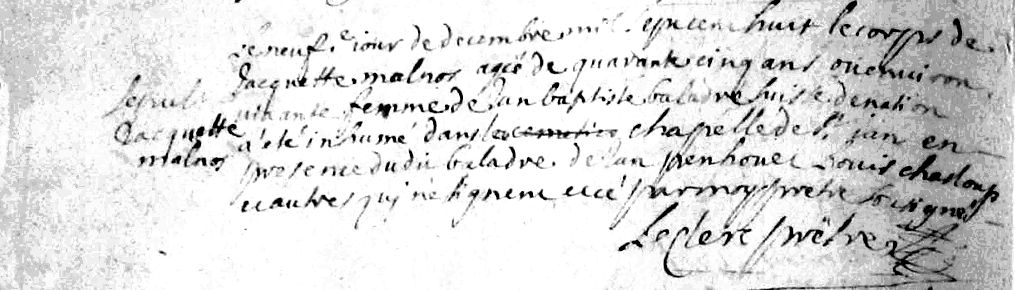 le neufe iour de decembre mil sept cent huit le corps de
Jacquette malnos agé de quarante cinq ans ou enuiron
viuante femme de Jan baptiste baladre suisse de nation
a été inhumé dans le cemetiere chapelle de st jan en
presence dudit baladre de Jan penhouet Louis chasloup
et autres qui ne signent
par moy pretre sousigné
Leclerc prêtre
sepult
Jacquette
malnos